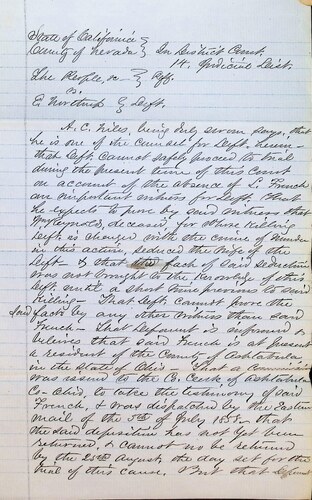 State of California }
County of Nevada } In District Court
14. Judicial Dist.
The People, &c } Plff.
vs.
E. Northup } Deft.
A. C. Niles, being duly sworn says, that
he is one of the counsel for Deft. herein—
that Deft. cannot safely proceed to trial
during the present term of this Court
on account of the absence of L. French
an important witness for Deft. That
he expects to prove by said witness that
McReynolds, deceased, for whose killing
Deft is charged with the crime of Murder
in this action, seduced the Wife of the
Deft & that the fact of said seduction
was not brought to the Knowledge of this
Deft. until a short time previous to said
Killing— That Deft. cannot prove the
said facts by any other witness than said
French— That Deponent is informed &
believes that said French is at present
a resident of the County of Ashtabula,
in the State of Ohio— That a commission
was issued to the Co. Clerk of Ashtabula
Co- Ohio, to take the testimony of said
French, & was dispatched by the Eastern
mail of the 5th of July 1858— that
the said deposition has not yet been
returned, & cannot be returned
by the 23rd August, the day set for the
trial of this cause. But that